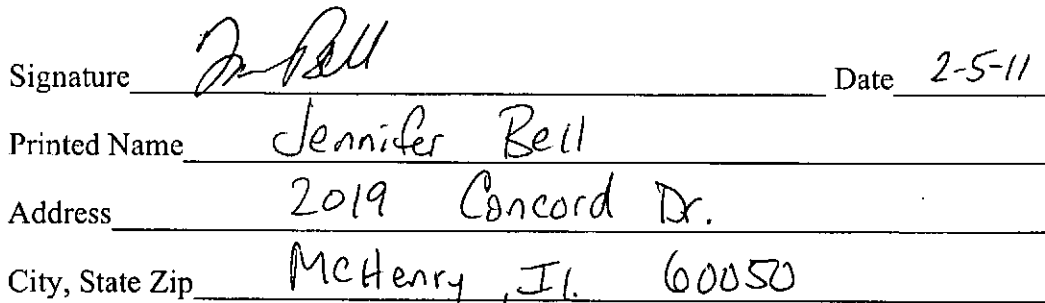 Signature Jen Bell Date 2-5-11
Printed Name Jennifer Bell
Address 2019 Concord Dr.
City, State Zip McHenry, Il. 60050